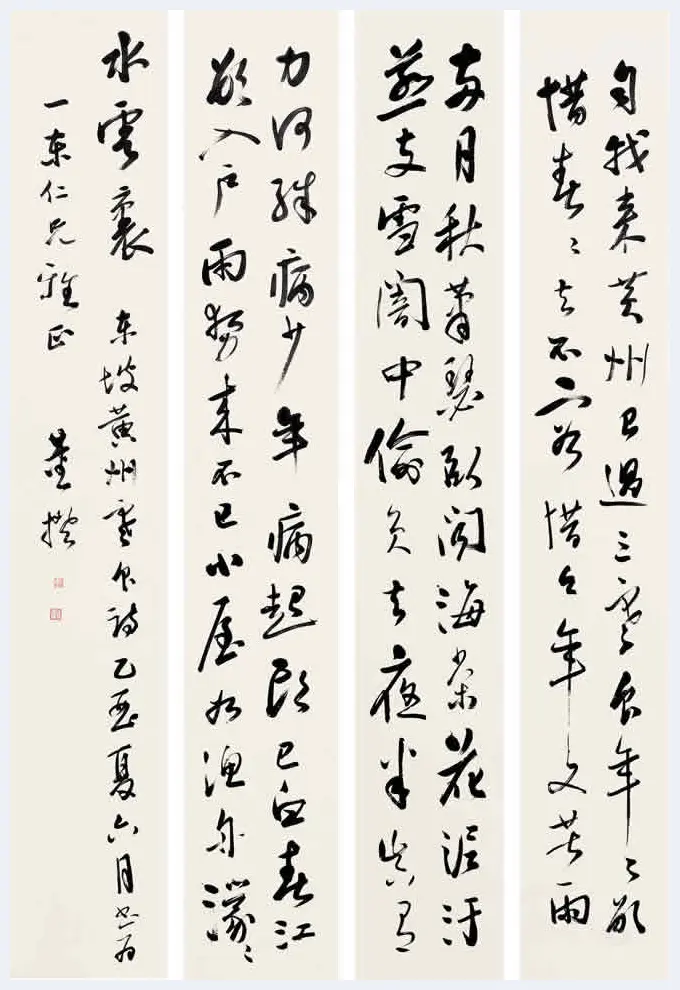 自我來黃州已過三寒食年々欲
惜春々去不容惜今年又苦雨
兩月秋蕭瑟臥聞海棠花泥污
燕支雪闇中偷負去夜半真有
力何殊病少年病起頭已白春江
欲入户雨勢來不已小屋如漁舟濛々
水雲裏 東坡黃州寒食詩乙酉夏六月書為
一東仁兄雅正